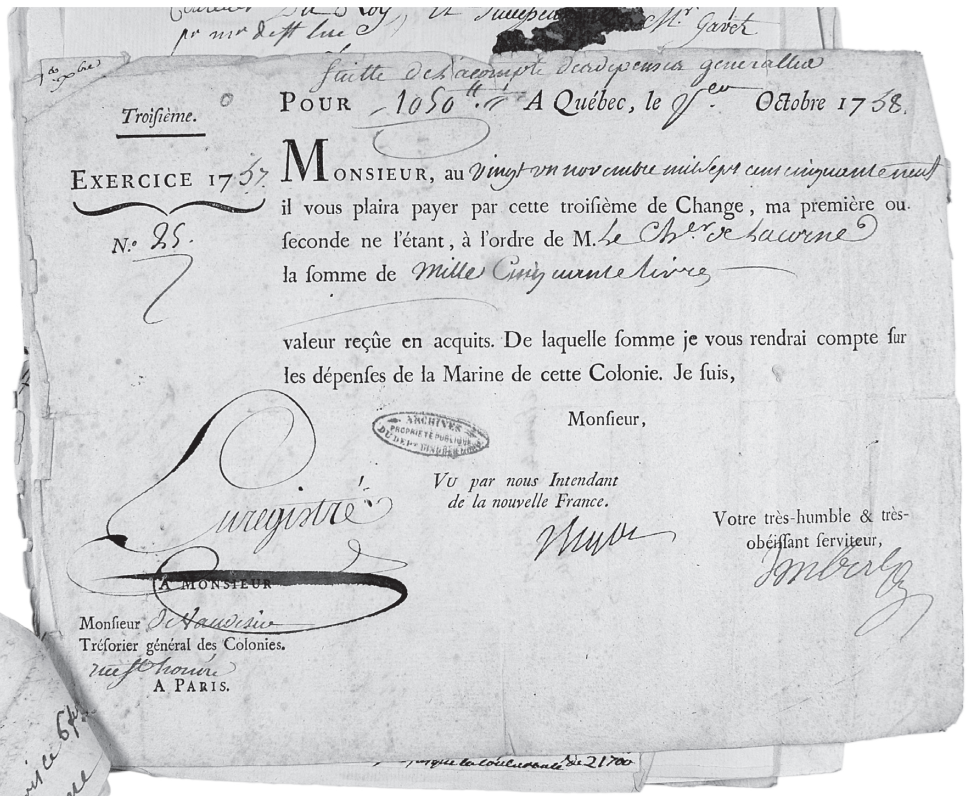 Mr Gavet
pr mr de St luc
Suitte des acompte des depenses generalles
Troiſième.
POUR 1050ᵗᵗ A Québec, le Octobre 1758.
EXERCICE 1757.
N.º 25.
MONSIEUR, au Vingt un novembre mil Sept cens cinquante neuf
il vous plaira payer par cette troiſième de Change, ma première ou
ſeconde ne l'étant, à l'ordre de M. Le Cher de Lacorne
la ſomme de Mille Cinquante livres
valeur reçûe en acquits. De laquelle ſomme je vous rendrai compte ſur
les dépenſes de la Marine de cette Colonie. Je ſuis,
Monſieur,
ARCHIVES
PROPRIÉTÉ PUBLIQUE
Vu par nous Intendant
de la nouvelle France.
Votre très-humble & très-
obéiſſant ſerviteur,
Imbert
Enregistré
A MONSIEUR
Monſieur
Tréſorier général des Colonies.
rue St honoré
A PARIS.
de 21700